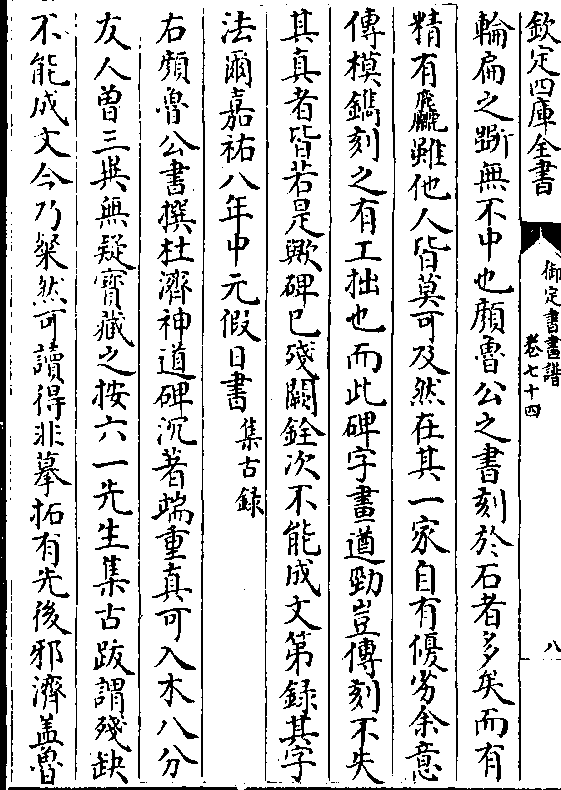 欽定四庫全書
御定書畫譜
卷七十四
八
輪扁之斲無不中也顔魯公之書刻於石者多矣而有
精有麤雖他人皆莫可及然在其一家自有優劣余意
傳模鐫刻之有工拙也而此碑字畫遒勁豈傳刻不失
其真者皆若是歟碑已殘闕銓次不能成文第錄其字
法爾嘉祐八年中元假日書集古錄
右顔魯公書撰杜濟神道碑沉著端重真可入木八分
友人曾三與無疑寳藏之按六一先生集古跋謂殘缺
不能成文今乃粲然可讀得非摹拓有先後邪濟盖魯